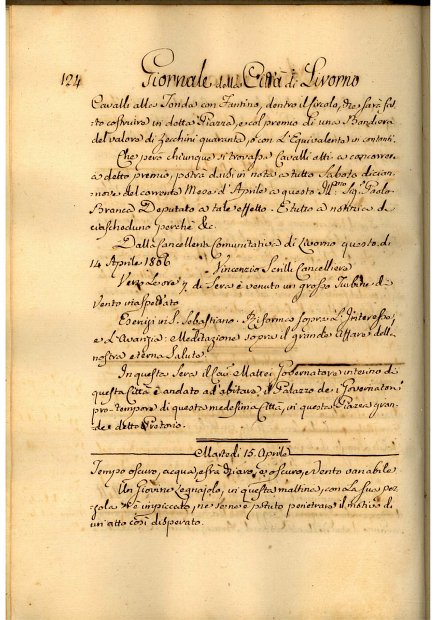 124 Giornale della Città di Livorno
Cavalli alla Tonda con Fantino, dentro il circolo, che sarà fat-
to costruire in detta Piazza, e col premio di una Bandiera
del valore di Zecchini quaranta, o con l'Equivalente in contanti.
Che però chiunque si trovasse Cavalli atti a concorrere
a detto premio, potrà darsi in nota a tutto Sabato dician-
nove del corrente Mese d'Aprile a questo Paolo
Branca Deputato a tale effetto. E tutto a notizia di
ciascheduno perchè &c.
Dalla Cancelleria Comunitativa di Livorno questo dì
14 Aprile 1806 Vincenzio Cancelliere
Verso le ore 7 di Sera è venuto un grosso Turbine di
Vento inaspettato
Esercizi in S. Sebastiano. Riforma sopra l'Interesse,
e l'Avanzia: Meditazione sopra il grande affare della
nostra eterna Salute.
In questa Sera il Mattei Governatore interino di
questa Città è andato ad abitare il Palazzo dei Governatori
pro-tempore di questa medesima Città, in questa Piazza gran-
de detto Pretorio.
Martedì 15. Aprile
Tempo oscuro, acqua, e fra chiaro, e oscuro, e Vento variabile
Un Giovine Legnajolo, in questa mattina, con la sua
si è impiccato, ne si è potuto penetrare il motivo di
un'atto così disperato.